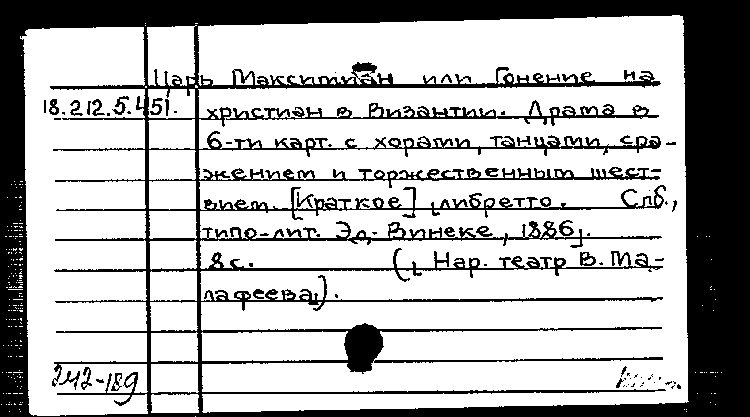 Царь Максимиан или Гонение на
18.212.5.451. христиан в Византии. Драма в
6-ти карт. с хорами, танцами, сра-
жением и торжественным шест-
вием. [Краткое] ⌊либретто. Спб.,
типо-лит. Эд. Винеке, 1886⌋.
8 с. (⌊Нар. театр В. Ма-
лафеева⌋).
242-189